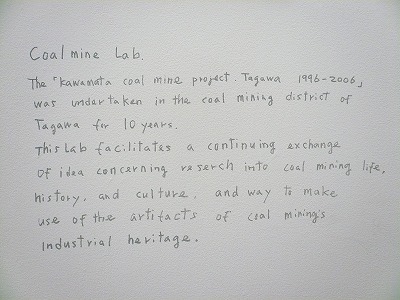 Coal mine Lab.
The「Kawamata coal mine project. Tagawa 1996-2006」
was undertaken in the coal mining district of
Tagawa for 10 years.
This Lab facilitates a continuing exchange
of idea concerning reserch into coal mining life,
history, and culture, and way to make
use of the artifacts of coal mining's
industrial heritage.